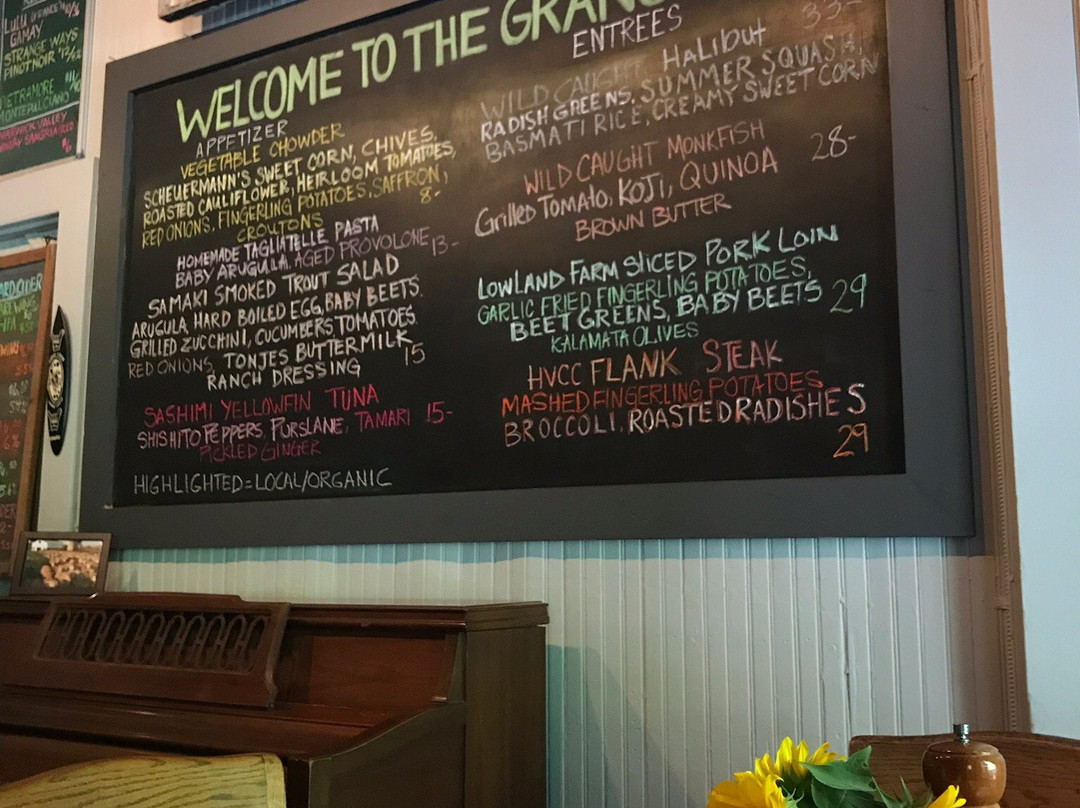 LULU
GAMAY
STRANGE WAYS
PINOT NOIR
PIETRAMORE
MONTEPULCIANO
WARWICK VALLEY
WELCOME TO THE GRAN
APPETIZER
VEGETABLE CHOWDER
SCHEUERMANN'S SWEET CORN, CHIVES,
ROASTED CAULIFLOWER, HEIRLOOM TOMATOES,
RED ONIONS, FINGERLING POTATOES, SAFFRON,
CROUTONS 8-
HOMEMADE TAGLIATELLE PASTA
BABY ARUGULA, AGED PROVOLONE 13-
SAMAKI SMOKED TROUT SALAD
ARUGULA, HARD BOILED EGG, BABY BEETS,
GRILLED ZUCCHINI, CUCUMBERS TOMATOES,
RED ONIONS, TONJES BUTTERMILK
RANCH DRESSING 15
SASHIMI YELLOWFIN TUNA
SHISHITO PEPPERS, PURSLANE, TAMARI 15-
PICKLED GINGER
HIGHLIGHTED = LOCAL/ORGANIC
ENTREES
WILD CAUGHT HALIBUT 33-
RADISH GREENS, SUMMER SQUASH,
BASMATI RICE, CREAMY SWEET CORN
WILD CAUGHT MONKFISH 28-
Grilled TOMATO, KOJI, QUINOA
BROWN BUTTER
LOWLAND FARM SLICED PORK LOIN
GARLIC FRIED FINGERLING POTATOES,
BEET GREENS, BABY BEETS 29
KALAMATA OLIVES
HVCC FLANK STEAK
MASHED FINGERLING POTATOES
BROCCOLI, ROASTED RADISHES
29